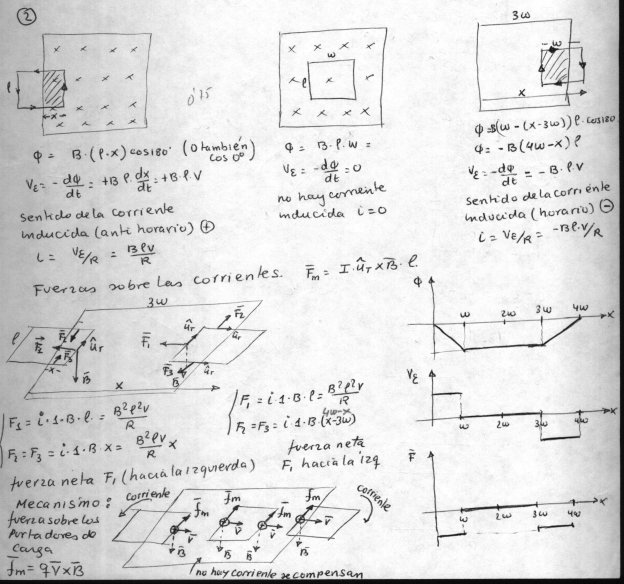 2
l
x
0'75
Φ = B·(l·x) cos180° (0 también cos 0°)
Vε = - dΦ/dt = +B l· dx/dt = +B·l·V
sentido de la corriente
inducida (anti horario) ⊕
i = Vε/R = Blv/R
w
l
Φ = B·l·w =
Vε = - dΦ/dt = 0
no hay corriente
inducida i = 0
3w
w
x
Φ = B(w-(x-3w))l·cos180
Φ = -B(4w-x)l
Vε = - dΦ/dt = -B·l·V
sentido de la corriente
inducida (horario) ⊖
i = Vε/R = -Bl·v/R
Fuerzas sobre las corrientes. F̄m = I·ûT x B̄·l.
3w
l
F̄2
F̄3
ûT
B̄
x
F̄1
F̄2
ûT
F̄3
B̄
ûT
F1 = i·1·B·l· = B²l²v/R
F2 = F3 = i·1·B·x = B²lv/R x
fuerza neta F1 (hacia la izquierda)
F1 = i·1·B·l = B²l²v/R
F2 = F3 = i·1·B·(x-3w)
4w-x
fuerza neta
F1 hacia la izq
Mecanismo:
fuerza sobre los
portadores de
carga
f̄m = qV̄xB̄
corriente
f̄m
f̄m
f̄m
f̄m
corriente
V̄
V̄
V̄
V̄
B̄
B̄
B̄
B̄
no hay corriente se compensan
Φ
w 2w 3w 4w x
Vε
w 2w 3w 4w x
F̄
w 2w 3w 4w x